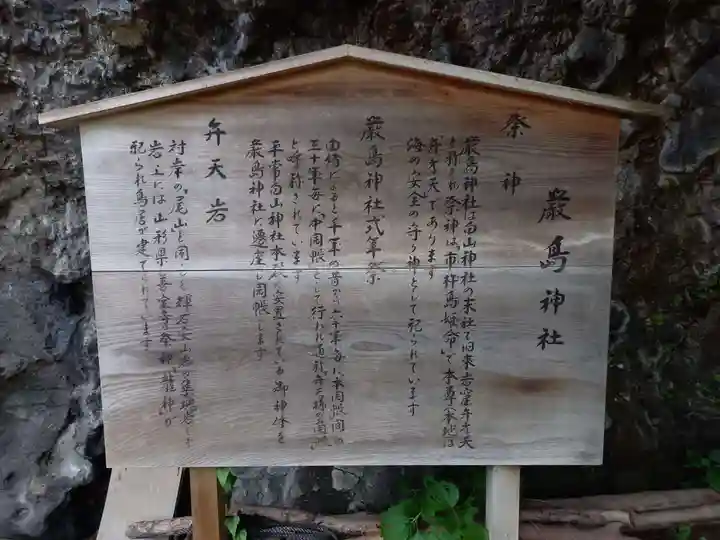 嚴島神社
祭神
嚴島神社は白山神社の末社で旧来岩窟弁才天
と称され祭神は「市杵島姫命」で本尊(本地)は
弁才天であります
海の安全の守り神として祀られています
嚴島神社式年祭
由緒によると千年の昔から六十年毎に本開帳間の
三十年毎に「中開帳」として行われ「道龍弁天様の開帳」
と呼称されています
平常白山神社本殿に安置されている御神体を
嚴島神社に遷座し開帳します
弁天岩
対岸の「尾山」と同じ
岩上には山形県「善宝寺」祭神「龍神」が
祀られ鳥居が建てられています